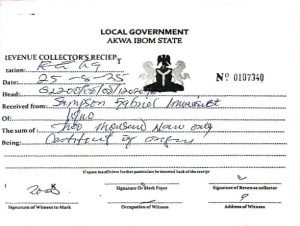 LOCAL GOVERNMENT
AKWA IBOM STATE
REVENUE COLLECTOR'S RECIEPT
tation:
Date: 25-5-25
Nº 0107340
Head:
Received from: Sampson Gabriel
Of:
The sum of: Two thousand Naira only
Being: Certificate of origin
If space insufficient further particulars be inserted back of the receipt
2000
Signature Or Mark Payer
Signature of Revenue collector
Signature of Witness to Mark
Occupation of Witness
Address of Witness